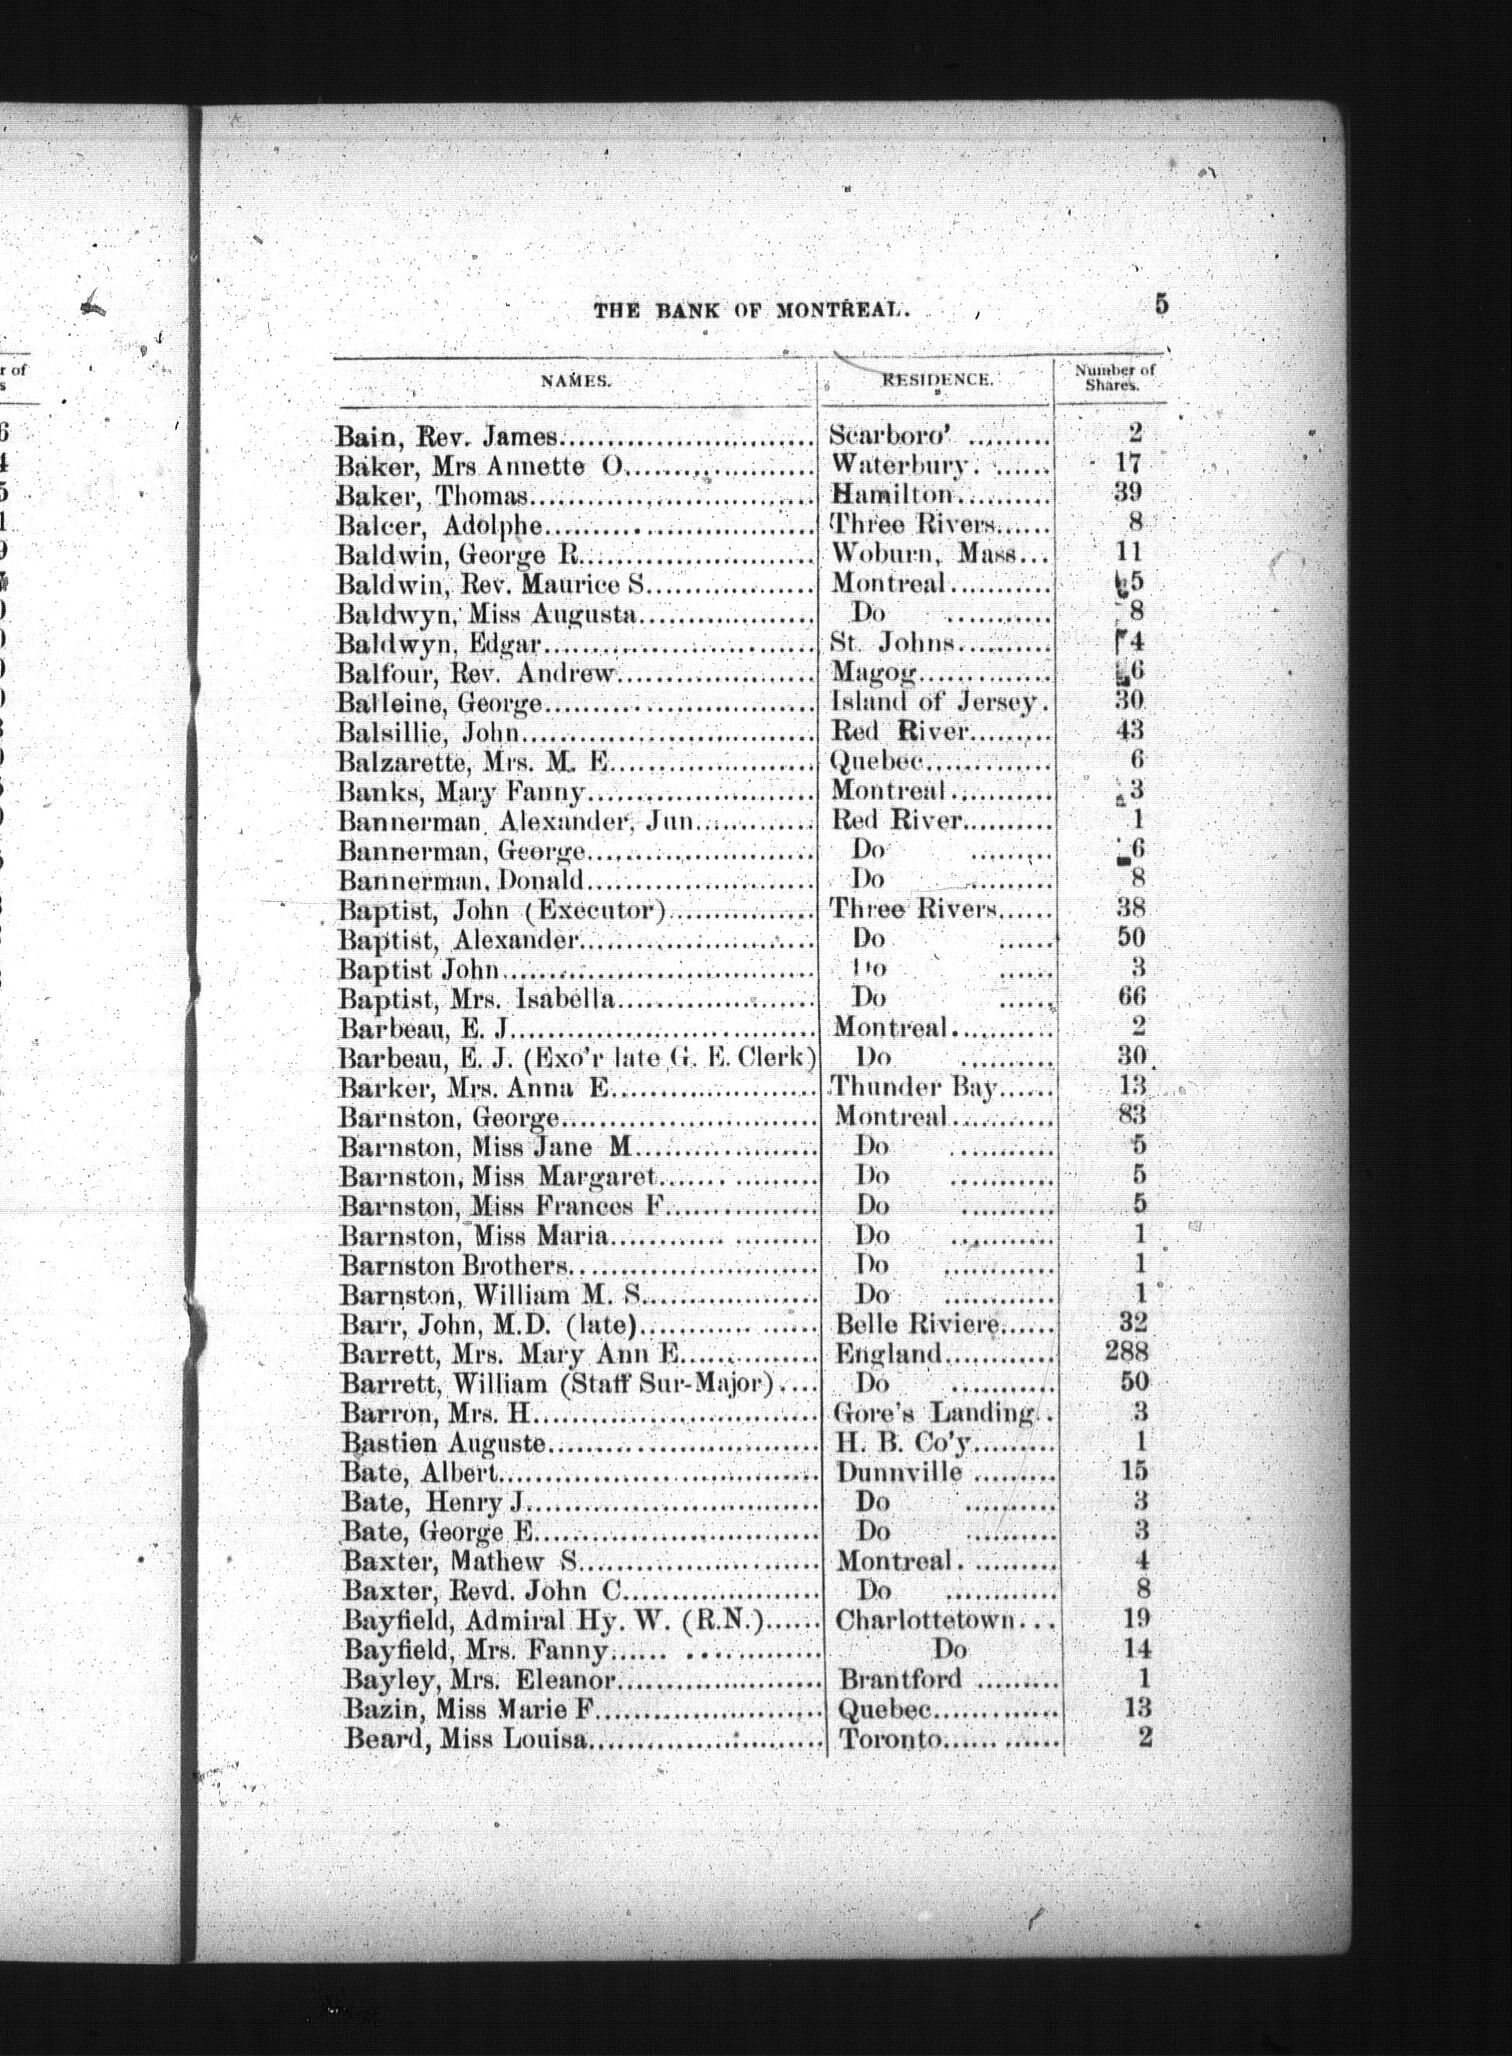 THE BANK OF MONTREAL. 5
NAMES. RESIDENCE. Number of Shares.
Bain, Rev. James Scarboro' 2
Baker, Mrs Annette O Waterbury 17
Baker, Thomas Hamilton 39
Balcer, Adolphe Three Rivers 8
Baldwin, George R Woburn, Mass 11
Baldwin, Rev. Maurice S Montreal 5
Baldwyn, Miss Augusta Do 8
Baldwyn, Edgar St. Johns 4
Balfour, Rev. Andrew Magog 6
Balleine, George Island of Jersey 30
Balsillie, John Red River 43
Balzarette, Mrs. M. E Quebec 6
Banks, Mary Fanny Montreal 3
Bannerman, Alexander, Jun Red River 1
Bannerman, George Do 6
Bannerman, Donald Do 8
Baptist, John (Executor) Three Rivers 38
Baptist, Alexander Do 50
Baptist John Do 3
Baptist, Mrs. Isabella Do 66
Barbeau, E. J Montreal 2
Barbeau, E. J. (Exo'r late G. E. Clerk) Do 30
Barker, Mrs. Anna E Thunder Bay 13
Barnston, George Montreal 83
Barnston, Miss Jane M Do 5
Barnston, Miss Margaret Do 5
Barnston, Miss Frances F Do 5
Barnston, Miss Maria Do 1
Barnston Brothers Do 1
Barnston, William M. S Do 1
Barr, John, M.D. (late) Belle Riviere 32
Barrett, Mrs. Mary Ann E England 288
Barrett, William (Staff Sur-Major) Do 50
Barron, Mrs. H Gore's Landing 3
Bastien Auguste H. B. Co'y 1
Bate, Albert Dunnville 15
Bate, Henry J Do 3
Bate, George E Do 3
Baxter, Mathew S Montreal 4
Baxter, Revd. John C Do 8
Bayfield, Admiral Hy. W. (R.N.) Charlottetown 19
Bayfield, Mrs. Fanny Do 14
Bayley, Mrs. Eleanor Brantford 1
Bazin, Miss Marie F Quebec 13
Beard, Miss Louisa Toronto 2